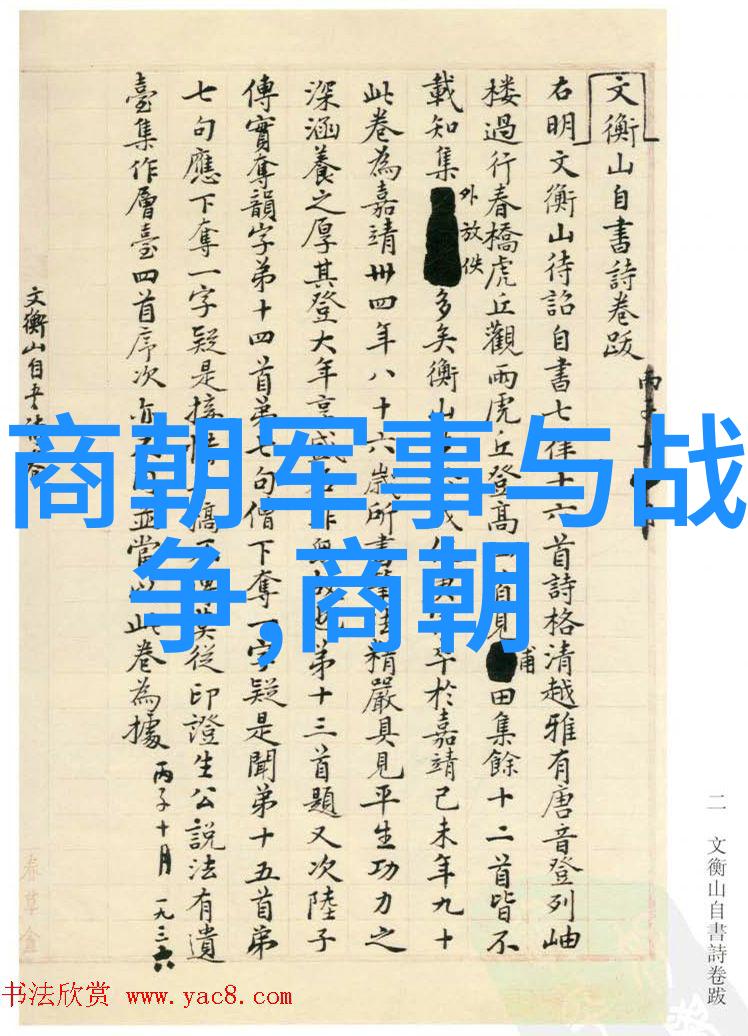 文衡山自書詩卷跋
右明文衡山待詔自書七律十六首詩格清越雅有唐音登列岫
楼過行春橋虎丘觀雨虎丘登高
自見
甫
田集餘十二首皆不
載知集
外放佚
多矣衡山
年於嘉靖己未年九十
此卷為嘉靖卌四年八十六歲所書
法精嚴具見平生功力之
深涵養之厚其登大年享盛名
第十三首題又次陸子
傳實奪韻字弟十四首弟七句僧下奪一字疑是聞弟十五首弟
七句應下奪一字疑是接
從印證生公說法有遺
臺集作層臺四首序次亦
並當以此卷為據
丙子十月 一九三六
文衡山自書
商朝军事与战
争,商朝
二 文衡山自書詩卷跋
书法欣赏 www.yac8.com